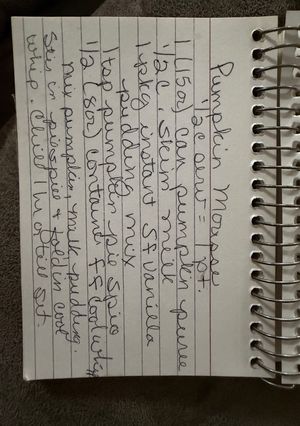 Pumpkin Mousse
1/2 c serv = 1 pt.
1 (15 oz) can pumpkin puree
1/2 c. skim milk
1 pkg instant SF Vanilla
pudding mix
1 tsp pumpkin pie spice
1/2 (8 oz) containt FF Cool whip
Mix pumpkin, milk, pudding.
Stir in pie spice + fold in Cool
whip. Chill 1 hr or til set.